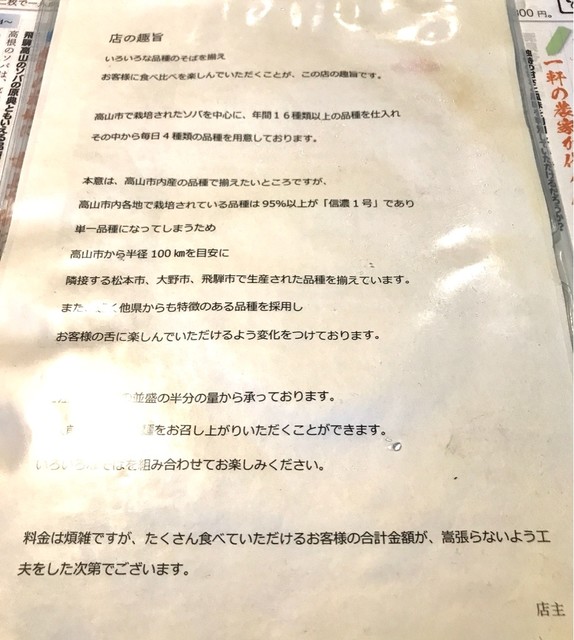 店の趣旨
いろいろな品種のそばを揃え
お客様に食べ比べを楽しんでいただくことが、この店の趣旨です。
高山市で栽培されたソバを中心に、年間16種類以上の品種を仕入れ
その中から毎日4種類の品種を用意しております。
本意は、高山市内産の品種で揃えたいところですが、
高山市内各地で栽培されている品種は95%以上が「信濃1号」であり
単一品種になってしまうため
高山市から半径100㎞を目安に
隣接する松本市、大野市、飛騨市で生産された品種を揃えています。
また、 く他県からも特徴のある品種を採用し
お客様の舌に楽しんでいただけるよう変化をつけております。
並盛の半分の量から承っております。
をお召し上がりいただくことができます。
いろいろ そばを組み合わせてお楽しみください。
料金は煩雑ですが、たくさん食べていただけるお客様の合計金額が、嵩張らないよう工
夫をした次第でございます。
店主
飛騨高山のソバの原典ともいえる
高根のソバは、
100円。
一軒の農家が